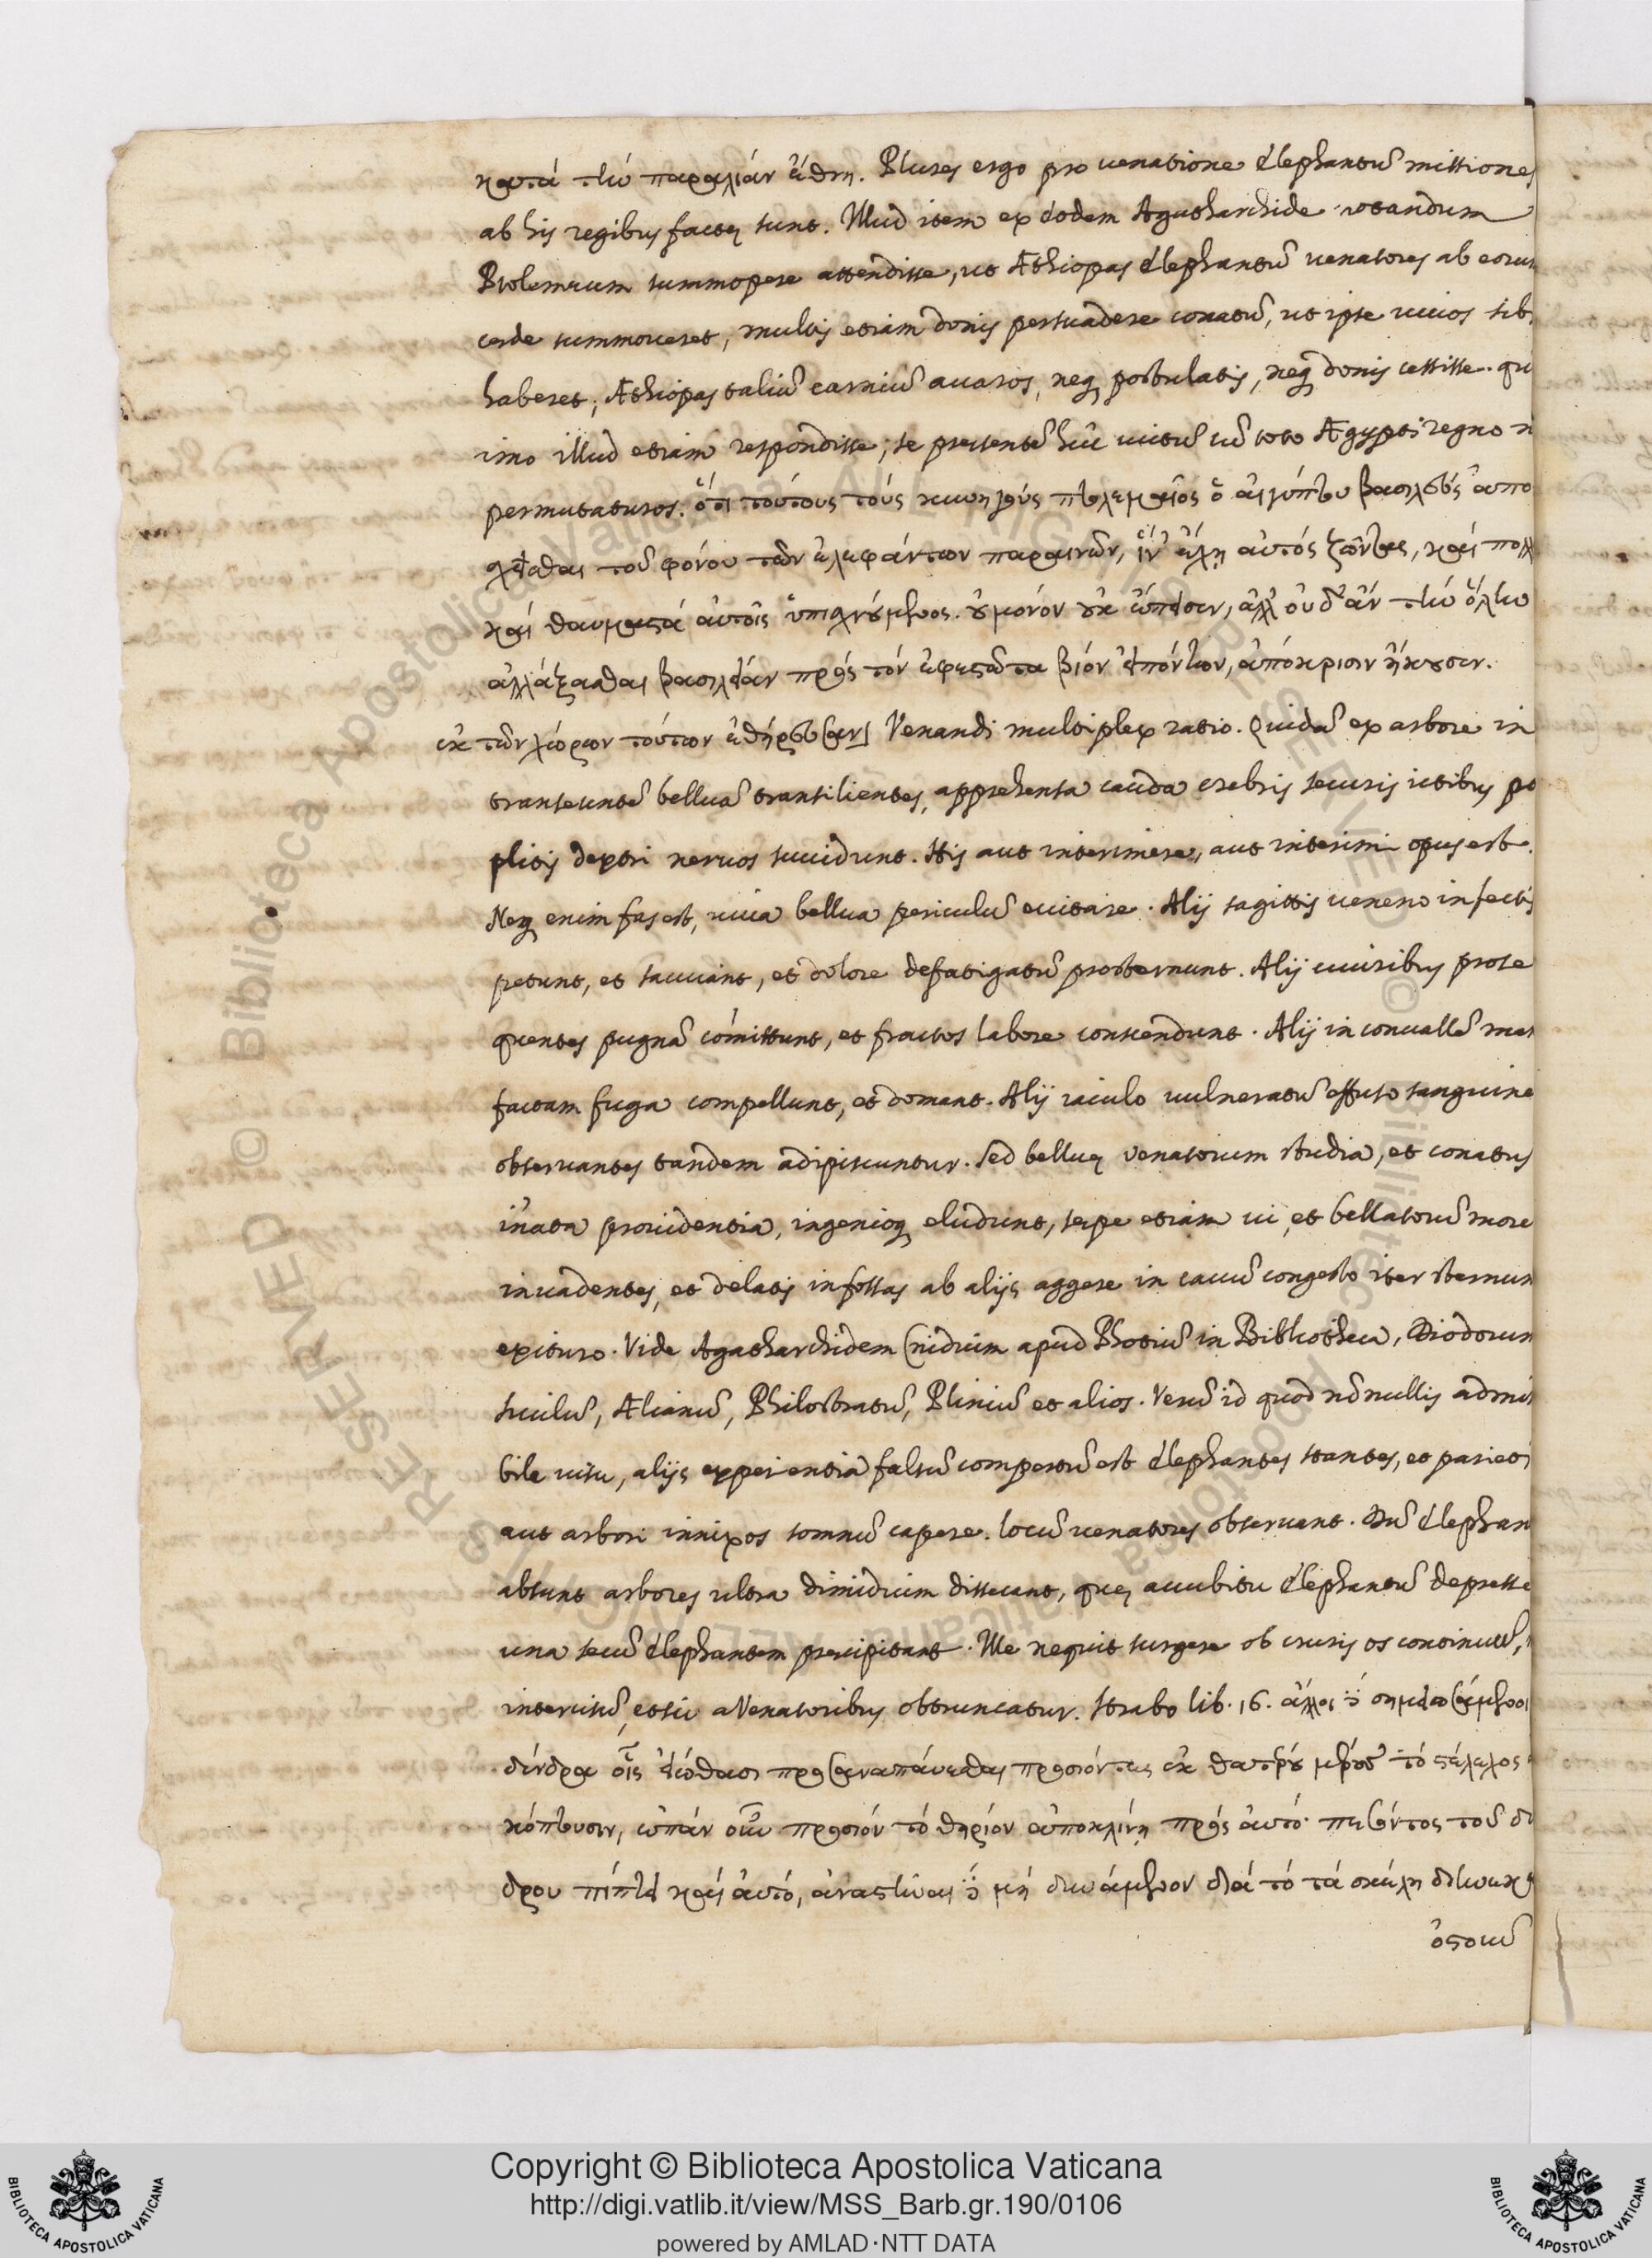 κατὰ τὴν παραλίαν ἔθνη. Plures ergo pro uenatione Elephantũ missiones
ab his regibus factę sunt. Illud item ex eodem Agatharchide notandum
Ptolemæum summopere attendisse, ut Æthiopas Elephantũ uenatores ab eorum
cæde summoueret, multis etiam donis persuadere conatũ, ut ipse uiuos sibi
haberet, Æthiopas taliũ carniũ auaros, neq postulatis, neq donis cessisse. qu
imo illud etiam respondisse, se præsentẽ hũc uictũ cũ toto Ægypti regno n
permutaturos. ὅτι τούτους τοὺς κυνηγοὺς πτολεμαῖος ὁ αἰγύπτου βασιλεὺς ἀπο
σχέσθαι τοῦ φόνου τῶν ἐλεφάντων παραινῶν, ἵν᾽ ἔχῃ αὐτὸς ζῶντας, καὶ πολλ
καὶ θαυμαστὰ αὐτοῖς ὑπισχνούμενος. οὐ μόνον οὐκ ἔπεισεν, ἀλλ᾽ οὐδ᾽ ἂν τὴν ὅλην
ἀλλάξασθαι βασιλείαν πρὸς τὸν ἐφεστῶτα βίον εἰπόντων, ἀπόκρισιν ἤκουσεν.
ἐκ τῶν χώρων τούτων ἐθήρευσαν] Venandi multiplex ratio. Quidã ex arbore in
transeuntẽ belluã transilientes, apprehensa cauda crebris securis ictibus po
plitis dextri neruos succidunt. His aut interimere, aut interimi opus est.
Neq enim fas est, uiua bellua periculũ euitare. Alij sagittis ueneno infectis
petunt, et sauciant, et dolore defatigatũ prosternunt. Alij cuuribus prose
quentes pugnã cõmittunt, et fractos labore conscendunt. Alij in conuallẽ man
factam fuga compellunt, et domant. Alij iaculo uulneratũ effuso sanguine
obseruantes tandem adipiscuntur. Sed belluę venatorum studia, et conatus
ĩnata prouidentia, ingenioq eludunt, sæpe etiam ui, et bellatorũ more
inuadentes, et delatis in fossas ab alijs aggere in cauũ congesto iter sternun
exituro. Vide Agatharchidem Cnidium apud Photiũ in Bibliotheca, Diodorum
siculũ, Ælianũ, Philostratũ, Pliniũ et alios. Verũ id quod nõnullis admir
bile uisu, alijs experientia falsũ compertũ est Elephantes stantes, et parieti
aut arbori innixos somnũ capere. locũ uenatores obseruant. Dũ Elephan
absunt arbores ultra dimidium dissecant, quę accubitu Elephantũ depresse
una secũ Elephantem præcipitant. Ille nequit surgere ob cruris os continuũ,
intercisũ, estũ a Venatoribus obtruncatur. Strabo lib. 16. ἄλλοι δὲ σημειωσάμενοι
δένδρα οἷς εἰώθασι προσαναπαύεσθαι προσιόντες ἐκ θατέρου μέρους τὸ στέλεχος
κόπτουσιν, ἐπὰν οὖν προσιὸν τὸ θηρίον ἀποκλίνῃ πρὸς αὐτὸ· πεσόντος τοῦ δέ
δρου πίπτει καὶ αὐτό, ἀναστῆναι δὲ μὴ δυνάμενον διὰ τὸ τὰ σκέλη διηνεκὲς
ὀστοῦν
Copyright © Biblioteca Apostolica Vaticana
http://digi.vatlib.it/view/MSS_Barb.gr.190/0106
powered by AMLAD·NTT DATA